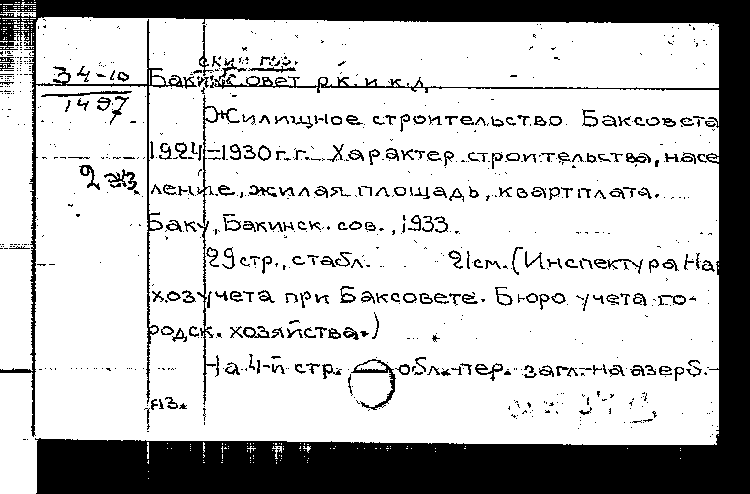 ский гор.
34-10 Бакинсовет р.к. и к.д.
1497 Жилищное строительство Баксовета
1924-1930 г.г. Характер строительства, насе
2 жз ление, жилая площадь, квартплата.
Баку, Бакинск. сов., 1933.
29 стр., с табл. 21 см. (Инспектура Нар
хозучета при Баксовете. Бюро учета го-
родск. хозяйства.)
На 4-й стр. обл. пер. загл. на азерб.
яз.